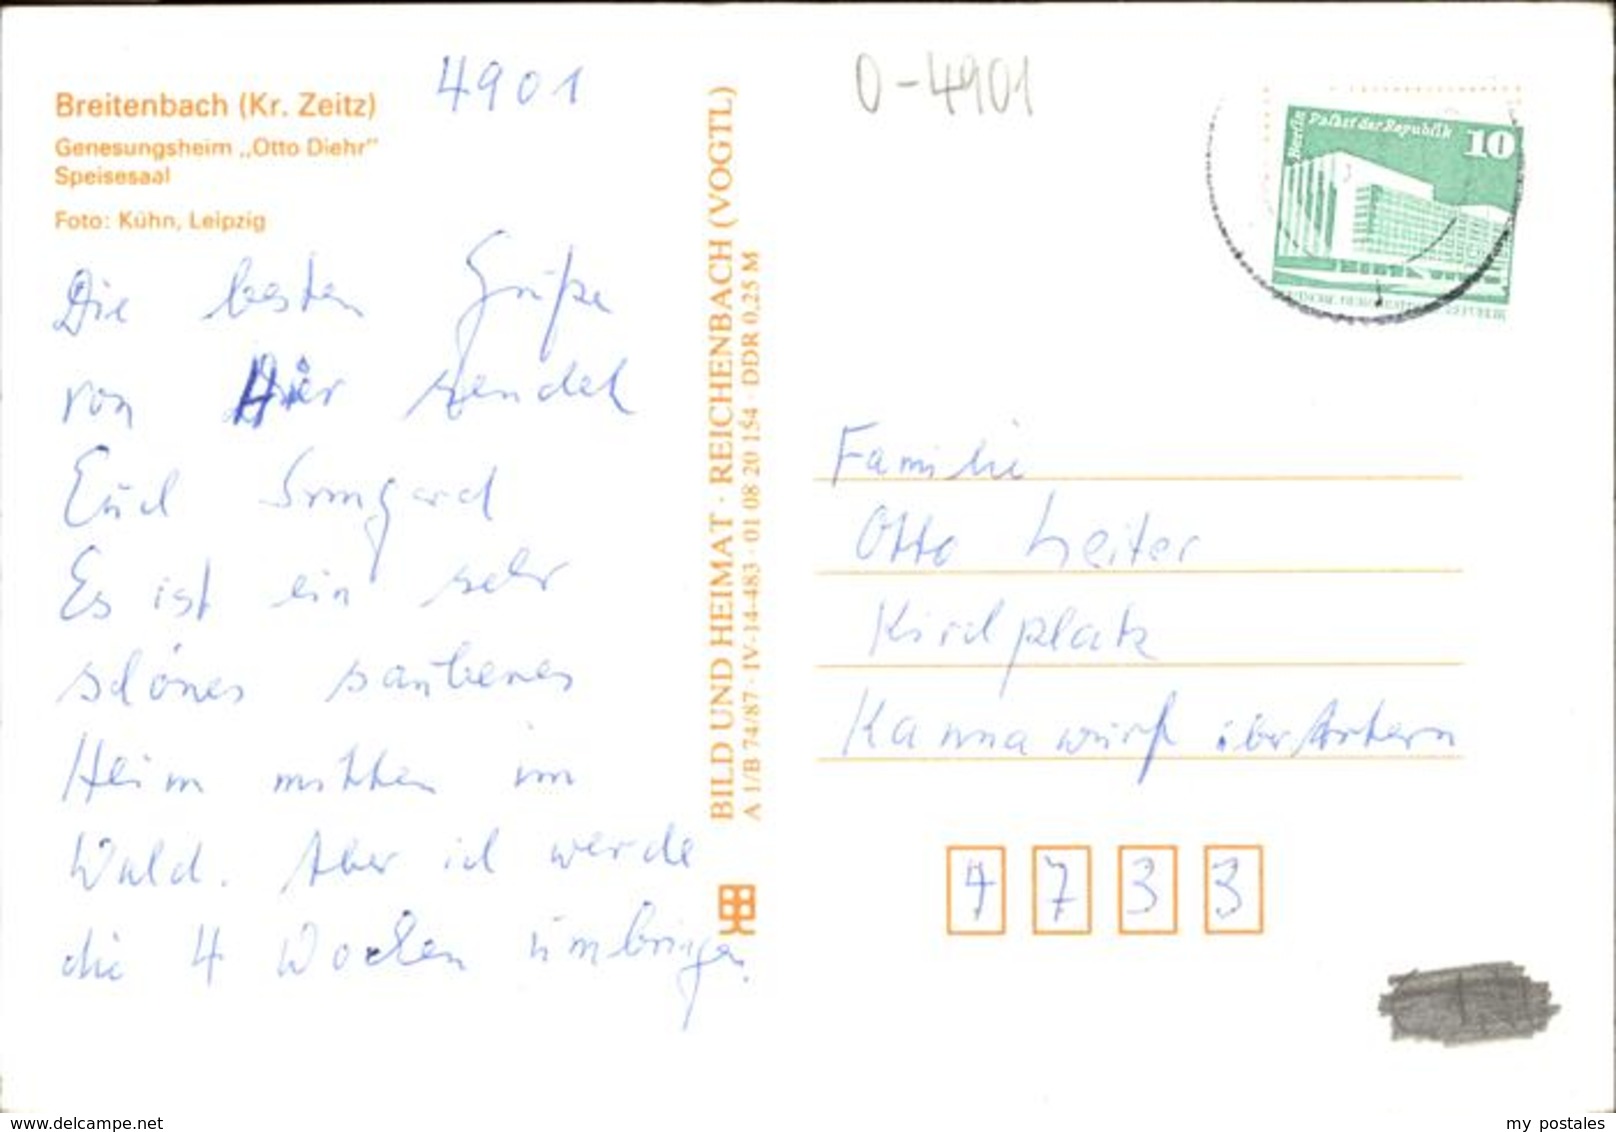 4901
O-4901
Breitenbach (Kr. Zeitz)
Genesungsheim „Otto Diehr"
Speisesaal
Foto: Kühn, Leipzig
Die besten Grüße
von Hier sendet
Euch Irmgard
Es ist ein sehr
schönes sauberes
Heim mitten im
Wald. Aber ich werde
die 4 Wochen umbringen.
BILD UND HEIMAT · REICHENBACH (VOGTL)
A 1/B 74/87 · IV-14-483 · 01 08 20 154 · DDR 0,25 M
Berlin Palast der Republik 10
Familie
Otto Leiter
Kirchplatz
Kannawurf über Artern
4 7 3 3
www.delcampe.net
my postales